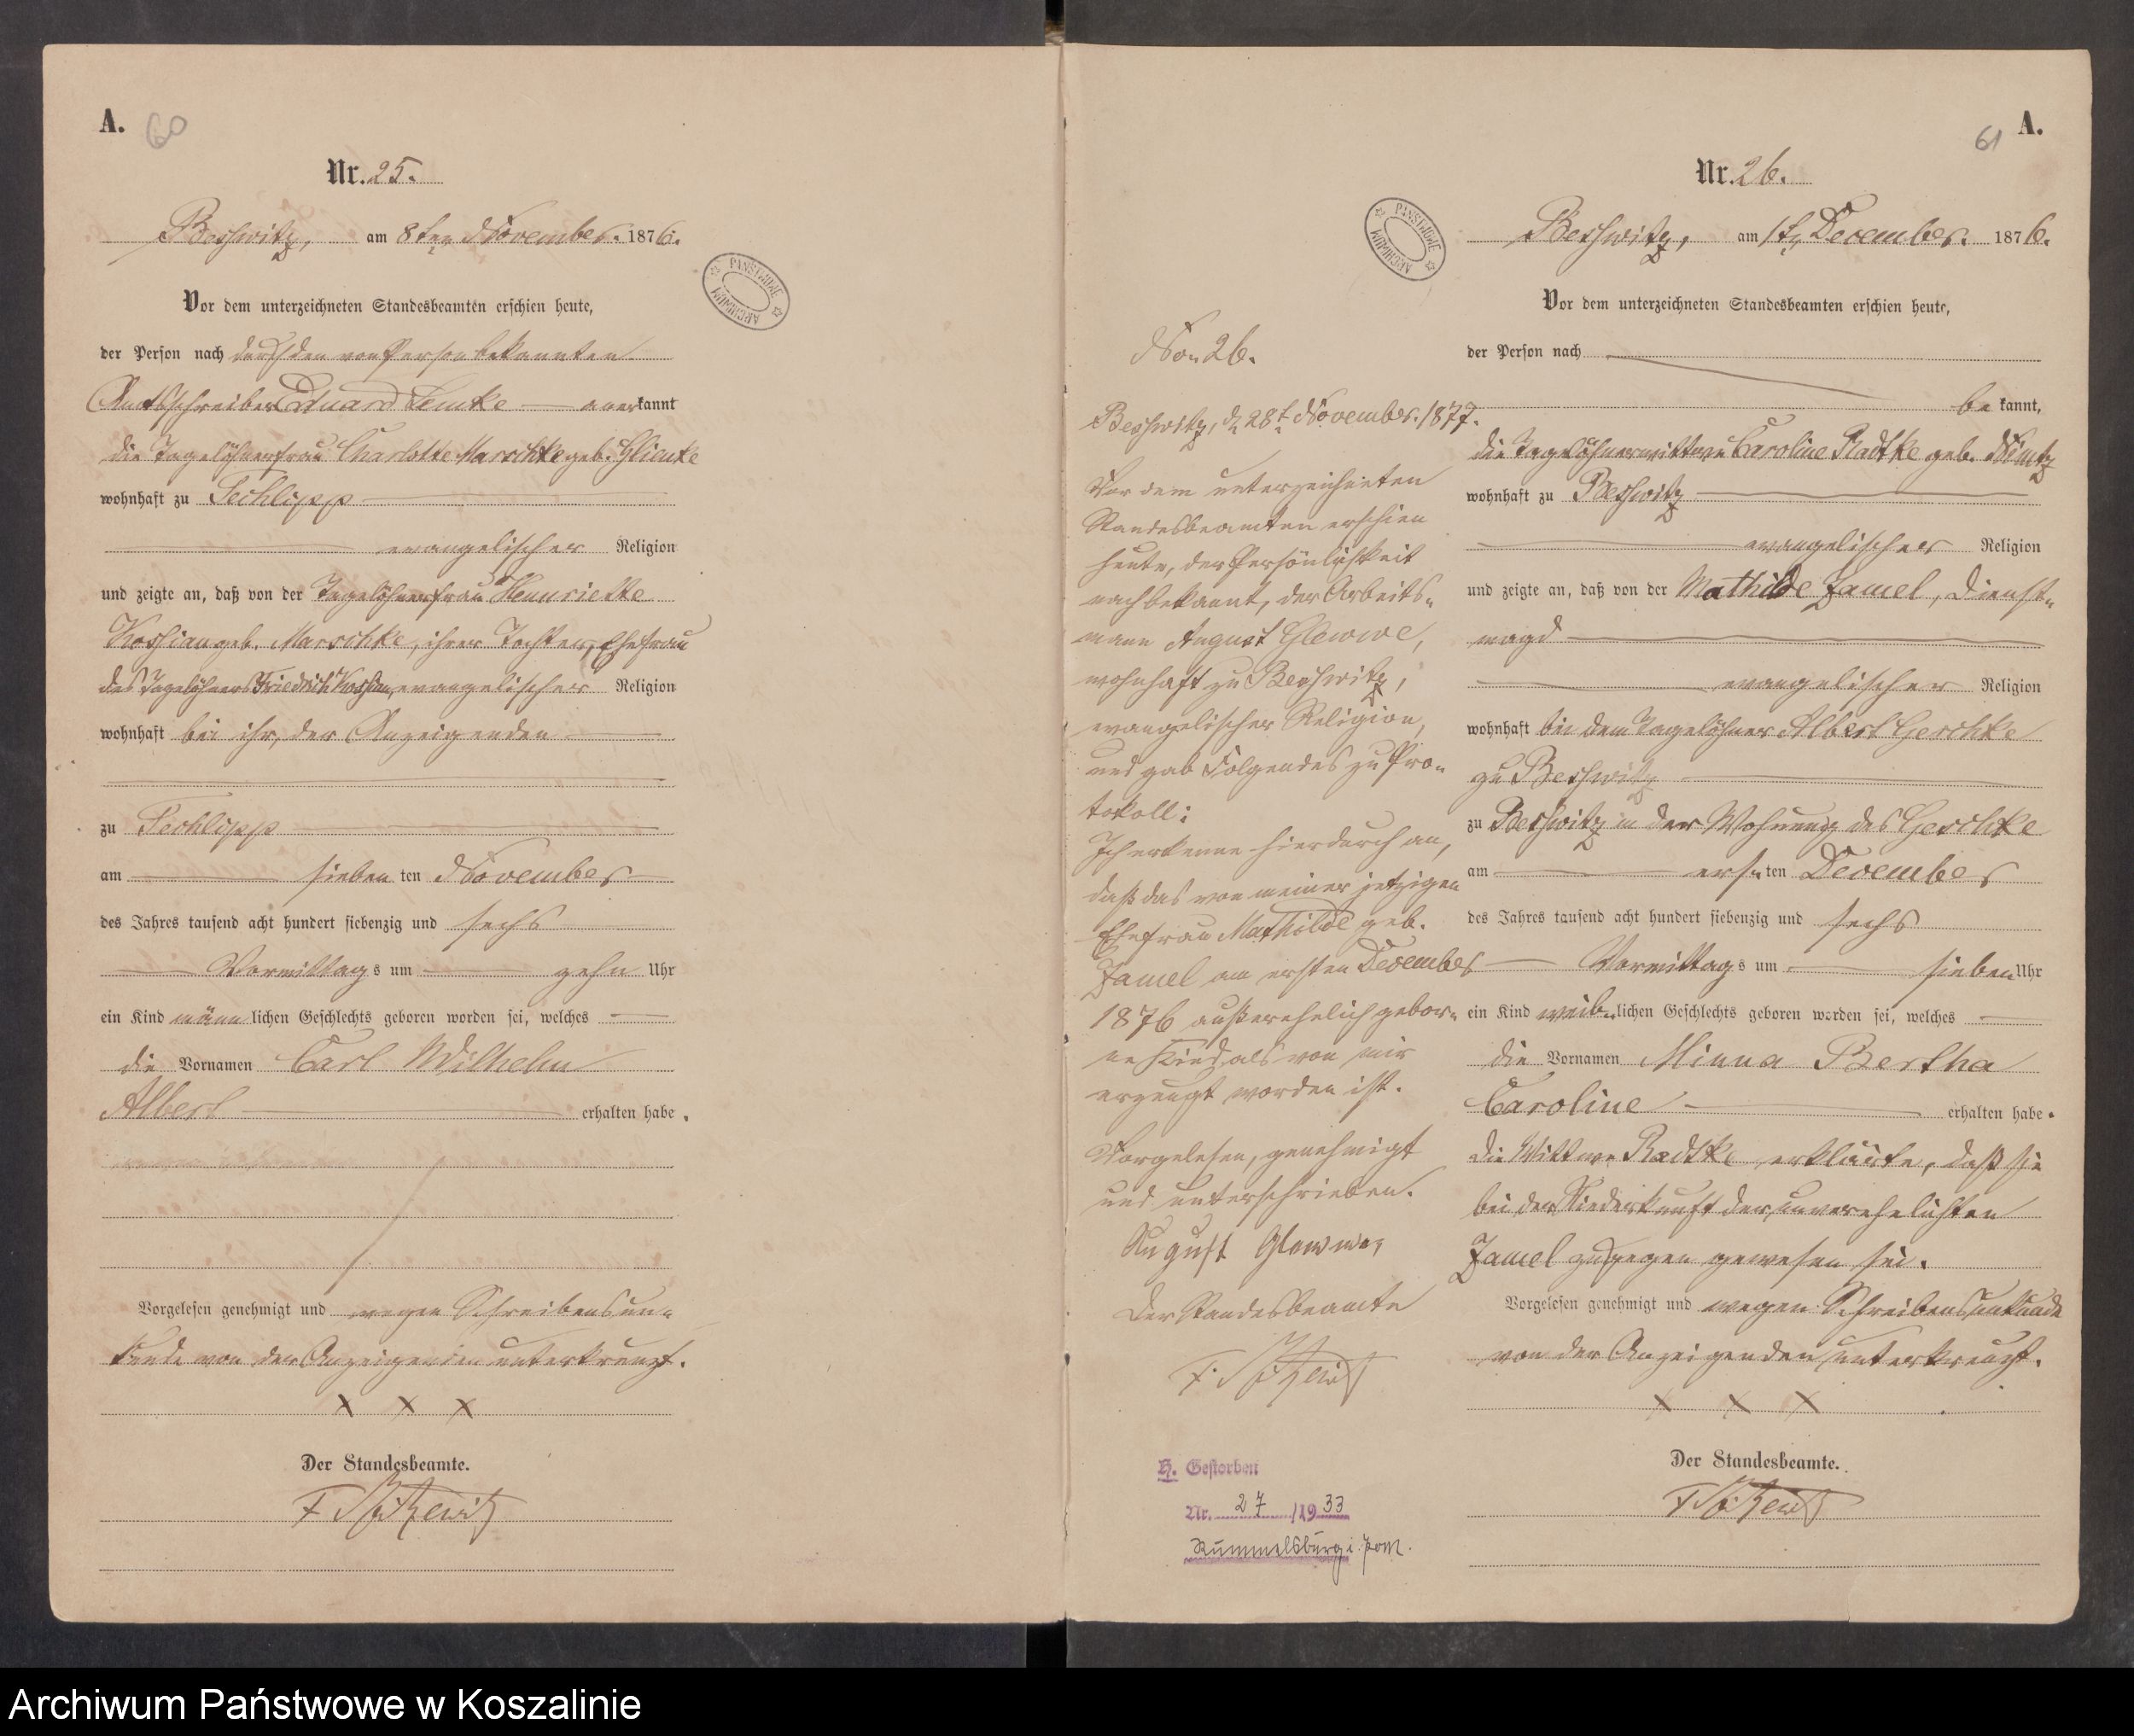 A. 60
Nr. 25.
Beßwitz, am 8ten November. 1876.
PAŃSTWOWE ARCHIWUM
Vor dem unterzeichneten Standesbeamten erschien heute,
der Person nach durch den von Person bekannten
Amtsschreiber Eduard Lemke — anerkannt
die Tagelöhnerfrau Charlotte Marschke geb. Glienke
wohnhaft zu Techlipp
evangelischer Religion
und zeigte an, daß von der Tagelöhnerfrau Henriette
geb. Marschke, ihrer Tochter, Ehefrau
des Tagelöhners Friedrich evangelischer Religion
wohnhaft bei ihr, der Anzeigenden
zu Techlipp
am sieben ten November
des Jahres tausend acht hundert siebenzig und sechs
Vormittags um zehn Uhr
ein Kind männlichen Geschlechts geboren worden sei, welches
die Vornamen Carl Wilhelm
Albert erhalten habe.
Vorgelesen genehmigt und wegen Schreibensun-
kunde von der Anzeigenden unterkreuzt.
X X X
Der Standesbeamte.
F.
A. 61
Nr. 26.
Beßwitz, am 1ten December. 1876.
PAŃSTWOWE ARCHIWUM
Vor dem unterzeichneten Standesbeamten erschien heute,
der Person nach
be kannt,
die Tagelöhnerwittwe Caroline Radtke geb.
wohnhaft zu Beßwitz
evangelischer Religion
und zeigte an, daß von der Mathilde Zamel, Dienst-
magd
evangelischer Religion
wohnhaft bei dem Tagelöhner Albert Geschke
zu Beßwitz
zu Beßwitz in der Wohnung des Geschke
am ersten December
des Jahres tausend acht hundert siebenzig und sechs
Vormittags um sieben Uhr
ein Kind weiblichen Geschlechts geboren worden sei, welches
die Vornamen Minna Bertha
Caroline erhalten habe.
die Wittwe Radtke erklärte, daß sie
bei der Niederkunft der unverehelichten
Zamel zugegen gewesen sei.
Vorgelesen genehmigt und wegen Schreibensunkunde
von der Anzeigenden unterkreuzt.
X X X
Der Standesbeamte.
F.
No. 26.
Beßwitz, d. 28t. November. 1877.
Vor dem unterzeichneten
Standesbeamten erschien
heute, der Persönlichkeit
nach bekannt, der Arbeits-
mann August Glewwe,
wohnhaft zu Beßwitz,
evangelischer Religion,
und gab Folgendes zu Pro-
tokoll:
Ich erkenne hierdurch an,
daß das von meiner jetzigen
Ehefrau Mathilde geb.
Zamel am ersten December
1876 außerehelich gebor-
ne Kind als von mir
erzeugt worden ist.
Vorgelesen, genehmigt
und unterschrieben.
August Glewwe,
Der Standesbeamte
F.
H. Gestorben
Nr. 27 /1933
Rummelsburg i. Pom.
Archiwum Państwowe w Koszalinie